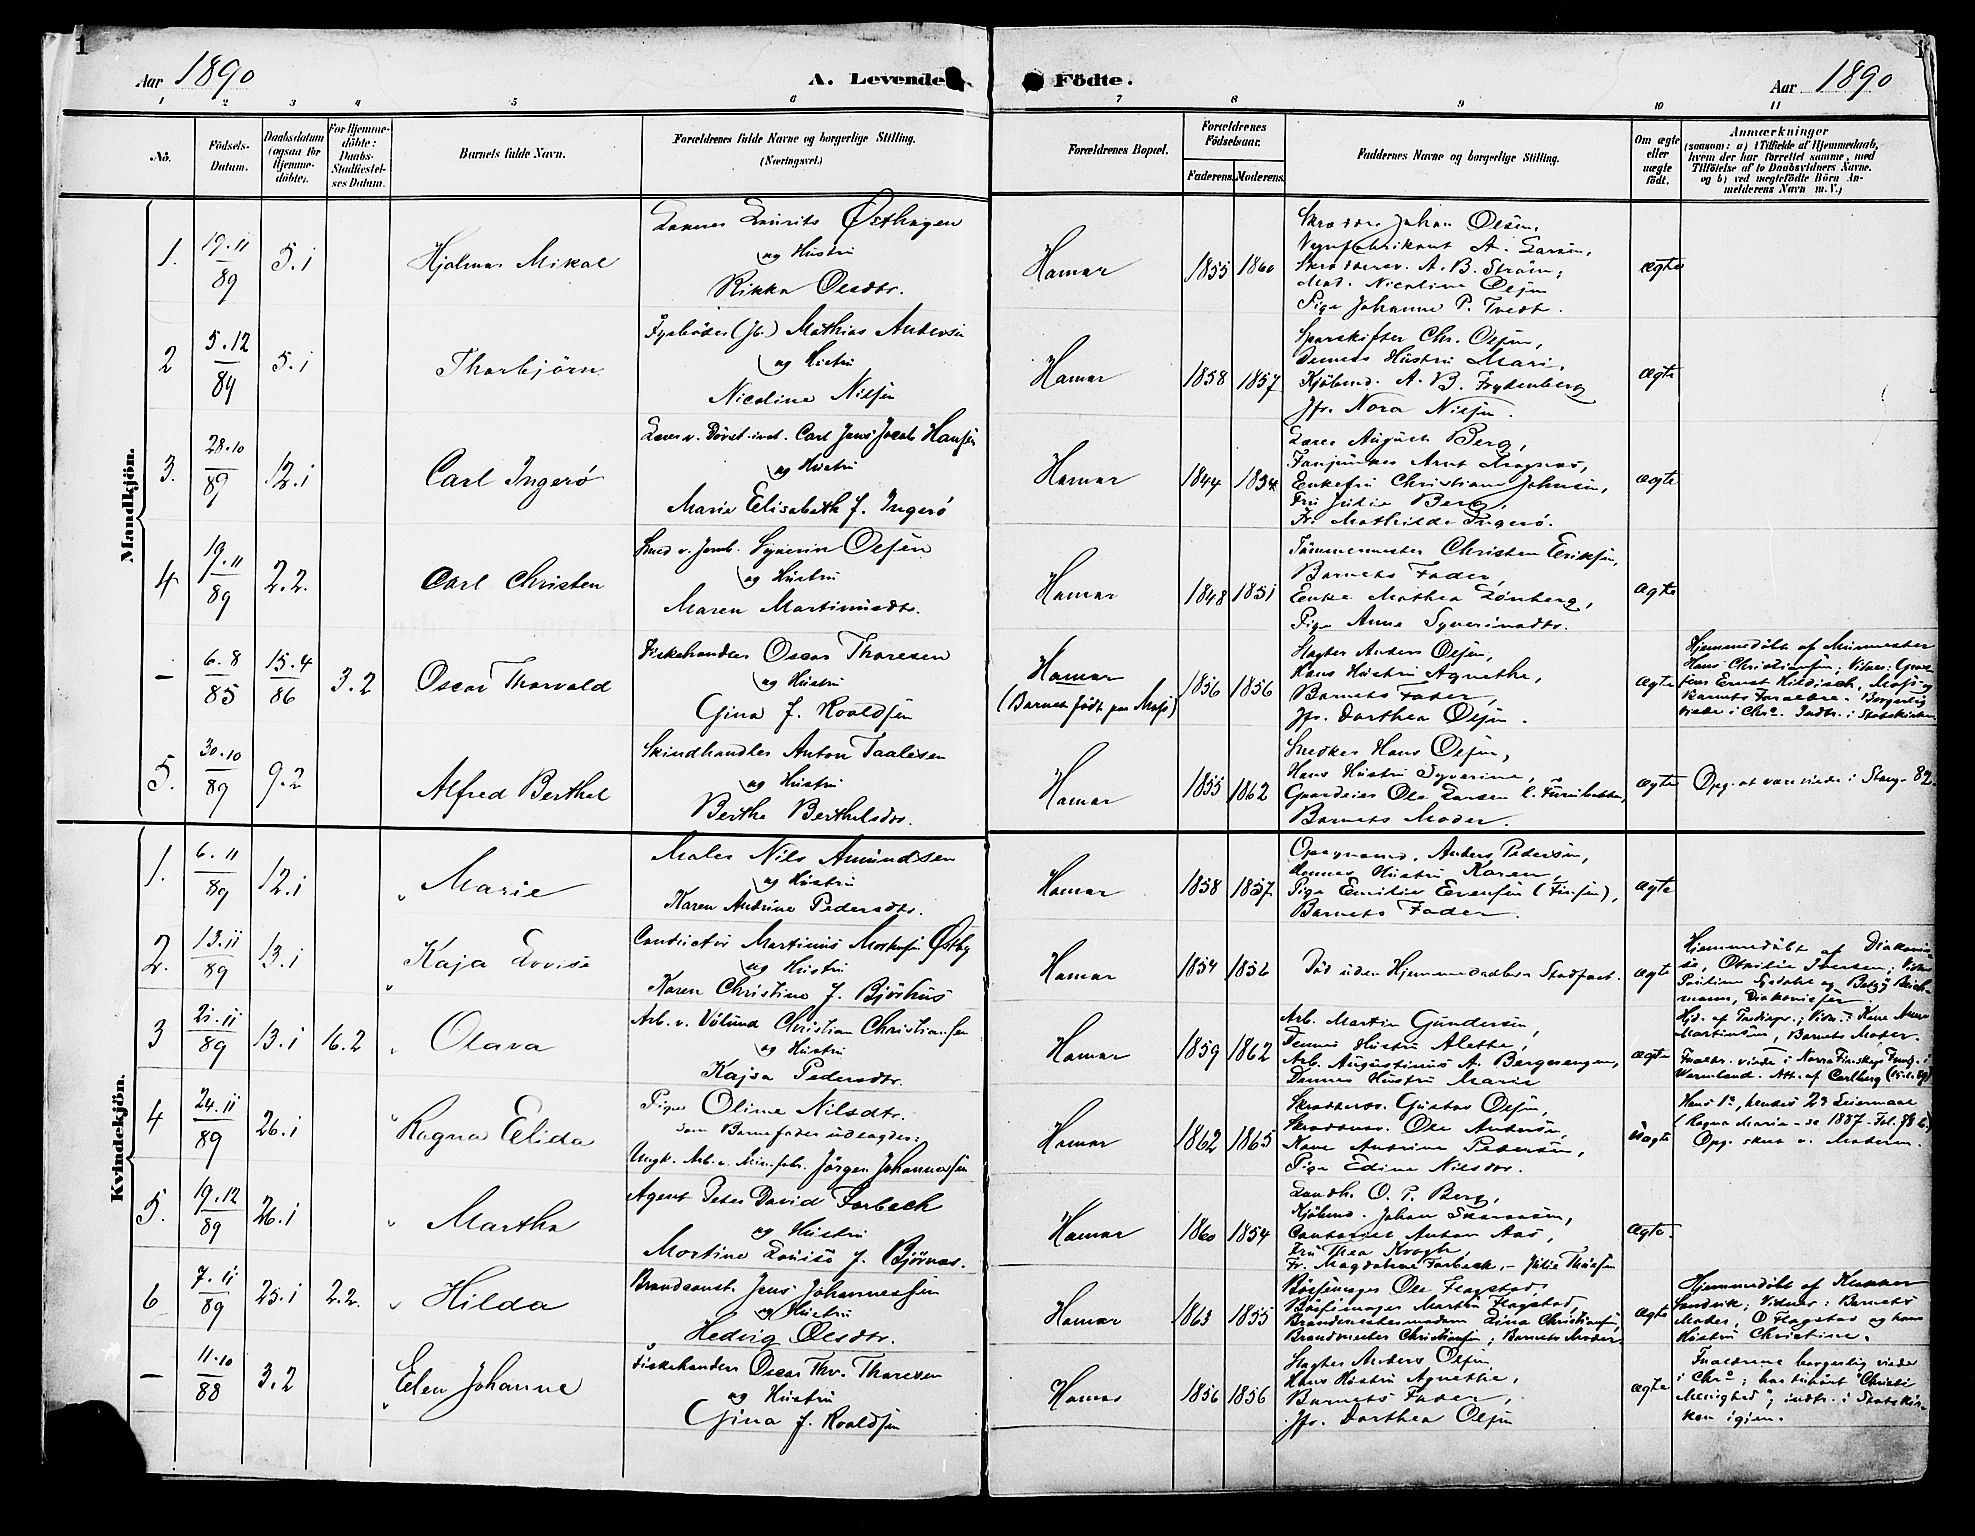 1
Aar 1890
A. Levende
Födte.
Aar 1890
1
1 2 3 4 5 6 7 8 9 10 11
No.
Födsels-
Datum.
Daabsdatum
(ogsaa for
Hjemme-
döbte).
For Hjemme-
döbte:
Daabs-
Stadfæstel-
ses Datum.
Barnets fulde Navn.
Forældrenes fulde Navne og borgerlige Stilling.
(Næringsvei.)
Forældrenes Bopæl.
Forældrenes
Födselsaar.
Faderens. Moderens.
Faddernes Navne og borgerlige Stilling.
Om ægte
eller
uægte
födt.
Anmærkninger
(saasom: a) i Tilfælde af Hjemmedaab,
hvem der har forrettet samme, med
Tilföielse af to Daabsvidners Navne.
og b) ved uægtefödte Börn An-
melderens Navn m. V.)
Mandkjön.
1. 19.11/89 5.1 Hjalmar Mikal
Laurits Østhagen
og Hustru
Rikka Olsdtr.
Hamar 1855 1860
Skrædder Johan Olsen,
Vognfabrikant A. Larsen,
Skræddersv. A. B. Strøm,
Mad. Nicoline Olsen
Pige Johanne P. Tvedt.
ægte
2 5.12/89 5.1 Thorbjörn
Fyrbøder (Jb.) Mathias Andersen
og Hustru
Nicoline Nilsen
Hamar 1858 1857
Sporskifter Chr. Olsen,
Dennes Hustru Mari,
Kjöbmd. A. B. Frydenberg
Jfr. Nora Nilsen.
ægte
3. 28.10/89 12.1 Carl Ingerø
Lærer v. Døvst.inst. Carl Jens Jacob Hansen
og Hustru
Marie Elisabeth f. Ingerø
Hamar 1844 1834
Lærer August Berg,
Fanejunker Arnt Magnus,
Enkefru Christiane Johnsen,
Fru Julie Berg,
Fr. Mathilde Ingerø.
ægte
4 19.11/89 2.2. Carl Christen
Smed v. Jernb. Syverin Olsen
og Hustru
Maren Martinusdtr.
Hamar 1848 1851
Tømmermester Christen Eriksen,
Barnets Fader,
Enke Mathea Lönberg,
Pige Anne Syverinsdtr.
ægte
- 6.8/85 15.4/86 3.2 Oscar Thorvald
Fiskehandler Oscar Thoresen
og Hustru
Gina f. Roaldsen
Hamar
(Barnet födt paa Moss)
1856 1856
Slagter Anders Olsen,
Hans Hustru Agnethe,
Barnets Fader,
Jfr. Dorthea Olsen.
ægte
Hjemmedøbt af Murmester
Hans Christiansen; Vidner:
Ernst Hildisch, Moss og
Barnets Forældre. Borgerlig
viede i Chra. Indtr. i Statskirken
5. 30.10/89 9.2 Alfred Berthel
Skindhandler Anton Taalesen
og Hustru
Berthe Berthelsdtr.
Hamar 1855 1862
Snedker Hans Olsen,
Hans Hustru Syverine,
Gaardeier Ole Larsen l. Furubakken,
Barnets Moder.
ægte
Opg. at være viede i Stange 82.
Kvindekjön.
1. 6.11/89 12.1 „ Marie
Maler Nils Amundsen
og Hustru
Karen Andrine Pedersdtr.
Hamar 1858 1857
Opsynsmd. Anders Pedersen,
Dennes Hustru Karen,
Pige Emilie Evensen (Finsen),
Barnets Fader.
ægte
2. 13.11/89 13.1 „ Kaja Lovise
Conductör Martinus Østby
og Hustru
Karen Christine f. Björhus
Hamar 1854 1852
Död uden Hjemmedaabens Stadfæst.
ægte
Hjemmedöbt af Diakonis-
se, Othilie Iversen; Vidner
og Betzy Reich-
mann, Diakonisser
3 21.11/89 13.1 16.2 „ Olava
Arb. v. Vølund Christian Christiansen
og Hustru
Kajsa Pedersdtr.
Hamar 1859 1862
Arb. Martin Gundersen,
Dennes Hustru Alette,
Arb. Augustinus A. Bergesengen,
Dennes Hustru Marie
ægte
Martinsen, Barnets Moder.
Forældr. viede i Norra Finskoga
Wermland. Att. af Carlberg
4 24.11/89 26.1 „ Ragna Elida
Pige Oline Nilsdtr.
som Barnefader udlagdes:
Ungk. Arb. v. Jörgen Johannessen
Hamar 1862 1865
Skræddersv. Gustav Olsen,
Skræddersv. Ole Andersen,
Kone Andrine Pedersen,
Pige Edine Nilsdtr.
uægte
Hans 1ste, hendes 2det Leiermaal
(Ragna Maria - se 1887 Fol. 78 b.)
Opg. skr. v. Moderen.
5. 19.12/89 26.1 „ Martha
Agent Peter David Forbech
og Hustru
Martine Louise f. Björnas.
Hamar 1860 1854
Landh. O. P. Berg,
Kjöbmd. Johan Skaraasen,
Contorist Anton Aas,
Fru Thea Krogh,
Fr. Magdalene Forbech, - Julie Thoresen
ægte.
6 7.11/89 25.1 2.2. „ Hilda
Brandconst. Jens Johannessen
og Hustru
Hedvig Olsdtr.
Hamar 1863 1855
Börsemager Ole Flagstad,
Börsemager Martin Flagstad,
Brandmestermadam Lina Christiansen,
Brandmester Christiansen; Barnets Moder
ægte
Hjemmedöbt af Klokker
Sandvik; Vidner: Barnets
Moder, O Flagstad og hans
Hustru Christine.
- 11.10/88 3.2 „ Elen Johanne
Fiskehandler Oscar Thv. Thoresen
og Hustru
Gina f. Roaldsen
Hamar 1856 1856
Slagter Anders Olsen
Hans Hustru Agnethe,
Barnets Fader,
Jfr. Dorthea Olsen
ægte
Forældrene borgerlig viede
i Chra; har tilhört "Christi
Menighed", indtr. i Statskir-
ken igjen.